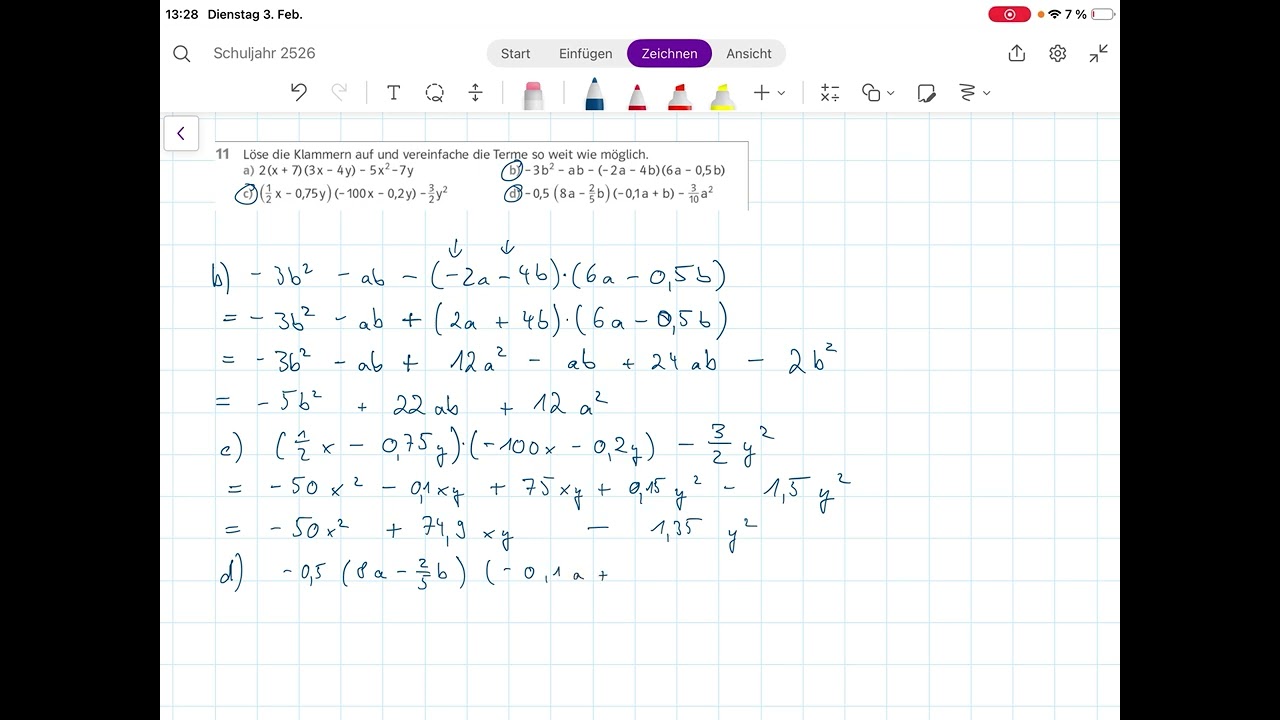 13:28 Dienstag 3. Feb. 7 %
Schuljahr 2526 Start Einfügen Zeichnen Ansicht
11 Löse die Klammern auf und vereinfache die Terme so weit wie möglich.
a) 2(x + 7)(3x − 4y) − 5x² − 7y b) −3b² − ab − (−2a − 4b)(6a − 0,5b)
c) (1/2 x − 0,75y)(−100x − 0,2y) − 3/2 y² d) −0,5 (8a − 2/5 b)(−0,1a + b) − 3/10 a²
b) − 3b² − ab − (−2a − 4b)·(6a − 0,5b)
= − 3b² − ab + (2a + 4b)·(6a − 0,5b)
= − 3b² − ab + 12a² − ab + 24ab − 2b²
= − 5b² + 22ab + 12a²
c) (1/2 x − 0,75y)·(−100x − 0,2y) − 3/2 y²
= − 50x² − 0,1xy + 75xy + 0,15y² − 1,5y²
= − 50x² + 74,9xy − 1,35y²
d) − 0,5 (8a − 2/5 b) (− 0,1a +